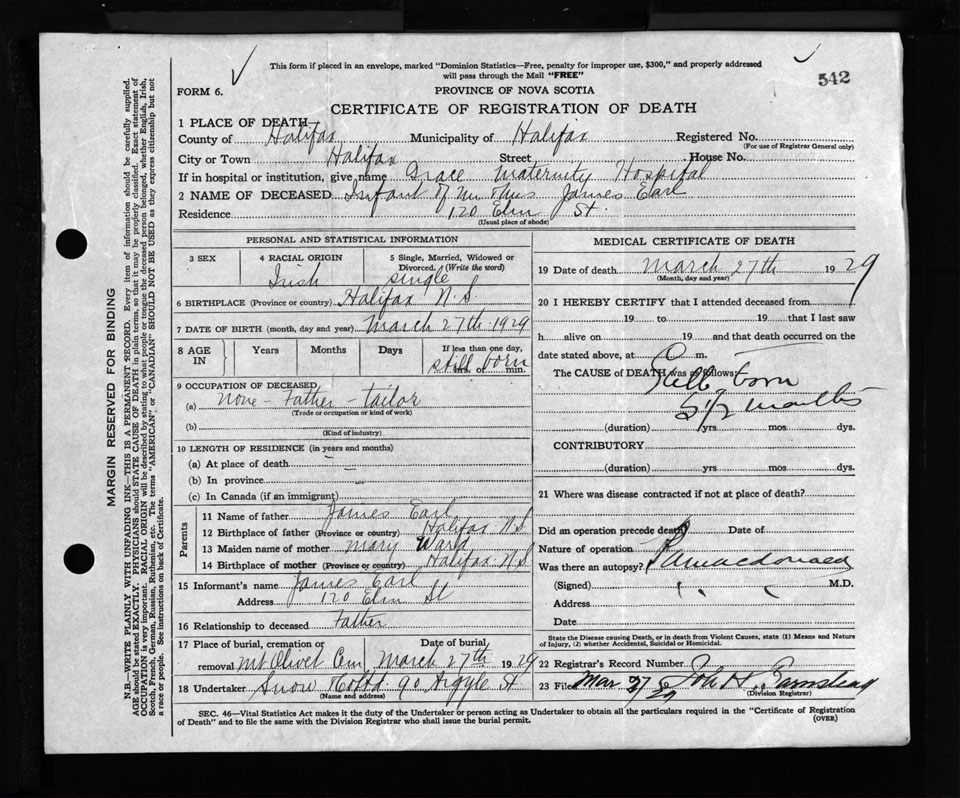 This form if placed in an envelope, marked "Dominion Statistics—Free, penalty for improper use, $300," and properly addressed
will pass through the Mail "FREE"
542
FORM 6.
PROVINCE OF NOVA SCOTIA
CERTIFICATE OF REGISTRATION OF DEATH
1 PLACE OF DEATH
County of Halifax Municipality of Halifax Registered No.
(For use of Registrar General only)
City or Town Halifax Street House No.
If in hospital or institution, give name Grace Maternity Hospital
2 NAME OF DECEASED Infant of Mr & Mrs James Earl
Residence 120 Elm St.
(Usual place of abode)
PERSONAL AND STATISTICAL INFORMATION
3 SEX
4 RACIAL ORIGIN
Irish
5 Single, Married, Widowed or
Divorced. (Write the word)
single
6 BIRTHPLACE (Province or country) Halifax N.S.
7 DATE OF BIRTH (month, day and year) March 27th 1929
8 AGE IN
Years Months Days
If less than one day,
still born
hrs. or min.
9 OCCUPATION OF DECEASED
(a) none - Father - tailor
(Trade or occupation or kind of work)
(b)
(Kind of industry)
10 LENGTH OF RESIDENCE (in years and months)
(a) At place of death
(b) In province
(c) In Canada (if an immigrant)
Parents
11 Name of father James Earl
12 Birthplace of father (Province or country) Halifax N.S
13 Maiden name of mother Mary Ward
14 Birthplace of mother (Province or country) Halifax N.S
15 Informant's name James Earl
Address 120 Elm St
16 Relationship to deceased Father
17 Place of burial, cremation or Date of burial
removal Mt Olivet Cem March 27th 1929
18 Undertaker Snow & Co Ltd 90 Argyle St
(Name and address)
MEDICAL CERTIFICATE OF DEATH
19 Date of death March 27th 1929
(Month, day and year)
20 I HEREBY CERTIFY that I attended deceased from
19 to 19 that I last saw
h alive on 19 and that death occurred on the
date stated above, at m.
The CAUSE of DEATH was as follows:
Still Born
5 1/2 months
(duration) yrs mos dys.
CONTRIBUTORY
(duration) yrs mos dys.
21 Where was disease contracted if not at place of death?
Did an operation precede death Date of
Nature of operation
Was there an autopsy?
(Signed) Macdonald M.D.
Address
Date
State the Disease causing Death, or in death from Violent Causes, state (1) Means and Nature
of Injury, (2) whether Accidental, Suicidal or Homicidal.
22 Registrar's Record Number
23 Filed Mar 27/29 John H. Barnstead
(Division Registrar)
SEC. 46—Vital Statistics Act makes it the duty of the Undertaker or person acting as Undertaker to obtain all the particulars required in the "Certificate of Registration
of Death" and to file the same with the Division Registrar who shall issue the burial permit.
(OVER)
MARGIN RESERVED FOR BINDING
N.B.—WRITE PLAINLY WITH UNFADING INK—THIS IS A PERMANENT RECORD. Every item of information should be carefully supplied.
AGE should be stated EXACTLY. PHYSICIANS should STATE CAUSE OF DEATH in plain terms, so that it may be properly classified. Exact statement of
OCCUPATION is very important. RACIAL ORIGIN will be described by stating to what people or tongue the deceased person belonged, whether English, Irish,
Scotch, French, German, Russian, Ruthenian, etc. The terms "AMERICAN" or "CANADIAN" SHOULD NOT BE USED as they express citizenship but not
a race or people. See instructions on back of Certificate.